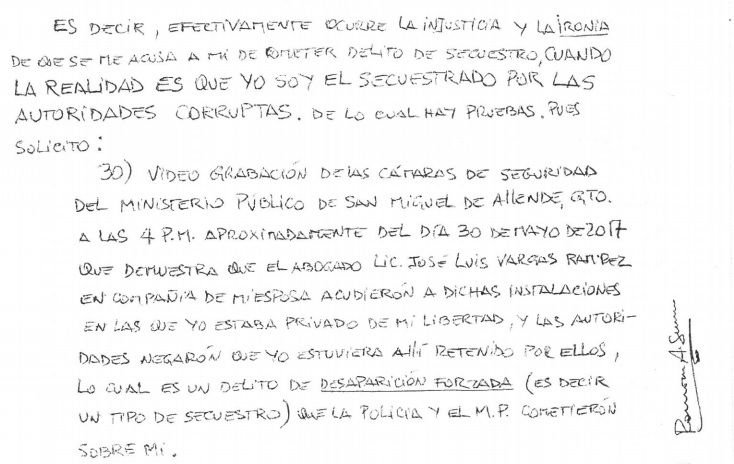 ES DECIR, EFECTIVAMENTE OCURRE LA INJUSTICIA Y LA IRONIA
DE QUE SE ME ACUSA A MÍ DE COMETER DELITO DE SECUESTRO, CUANDO
LA REALIDAD ES QUE YO SOY EL SECUESTRADO POR LAS
AUTORIDADES CORRUPTAS. DE LO CUAL HAY PRUEBAS. PUES
SOLICITO:
30) VIDEO GRABACIÓN DE LAS CÁMARAS DE SEGURIDAD
DEL MINISTERIO PÚBLICO DE SAN MIGUEL DE ALLENDE, GTO.
A LAS 4 P.M. APROXIMADAMENTE DEL DÍA 30 DE MAYO DE 2017
QUE DEMUESTRA QUE EL ABOGADO LIC. JOSÉ LUIS VARGAS RAMÍREZ
EN COMPAÑIA DE MI ESPOSA ACUDIERÓN A DICHAS INSTALACIONES
EN LAS QUE YO ESTABA PRIVADO DE MI LIBERTAD, Y LAS AUTORI-
DADES NEGARÓN QUE YO ESTUVIERA AHÍ RETENIDO POR ELLOS,
LO CUAL ES UN DELITO DE DESAPARICIÓN FORZADA (ES DECIR
UN TIPO DE SECUESTRO) QUE LA POLICIA Y EL M.P. COMETIERÓN
SOBRE MÍ.